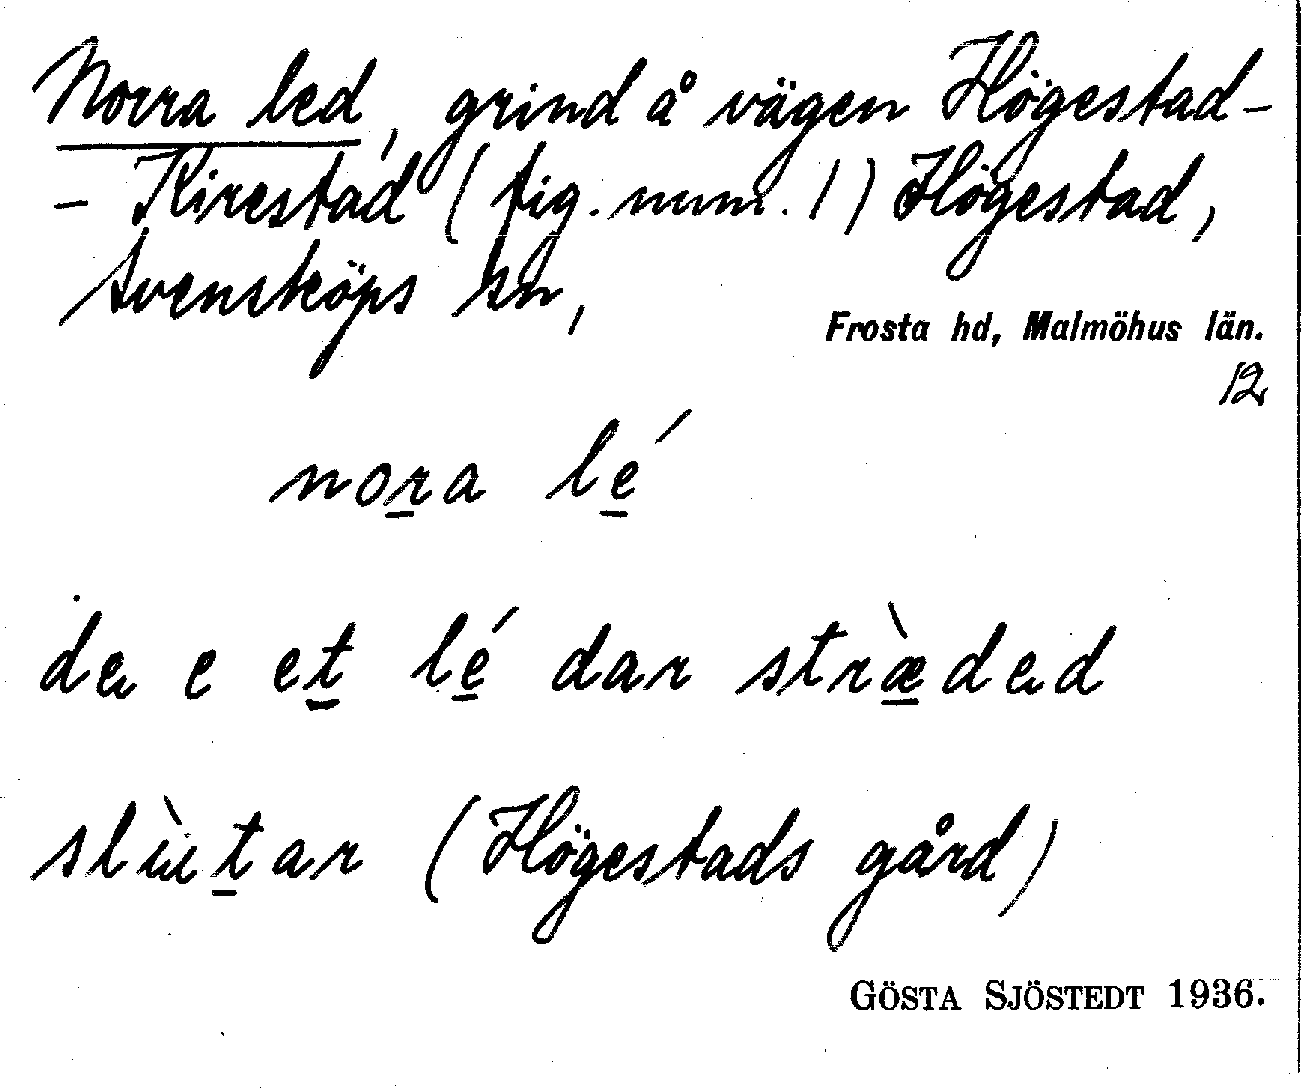 Norra led, grind å vägen Högestad-
- Kirestad (fig. num. 1) Högestad,
Svensköps sn,
Frosta hd, Malmöhus län.
12
nora lé
de e et lé dar stræ̀ded
slùtar (Högestads gård)
GÖSTA SJÖSTEDT 1936.